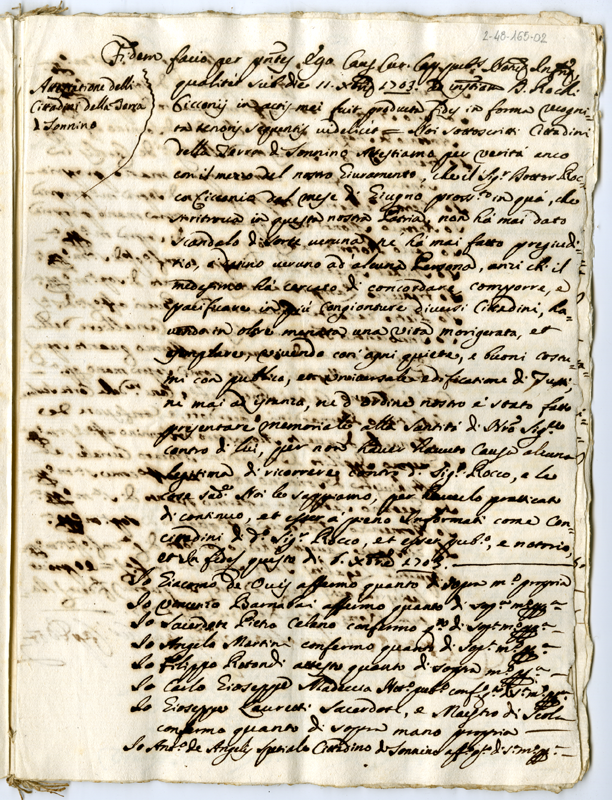 2-48-165-02
Fidem facio per pntes Ego Canc Cur. Cap.
qualiter sub die 11. Xbris 1703. ad instam D. Rochi
Attestatione delli
Cittadini della Terra
di Sonnino
Cicconij in actis mei fuit producta fides in forma recogni=
ta tenoris sequentis videlicet = Noi sottoscritti Cittadini
della Terra di Sonnino Attestiamo per verità anco
con il mezzo del nostro Giuramento, che il Sigr Dottor Roc=
co Cicconio dal mese di Giugno pross.o in quà, che
si ritrova in questa nostra Patria, non hà mai dato
scandalo di sorte veruna, ne hà mai fatto pregiudi=
tio, a veruno ad alcuna Persona, anzi ch' il
medesimo hà cercato di concordare, comporre, e
pacificare in più congionture diversi Cittadini, ha=
vendo in oltre menata una vita morigerata, et
esemplare, vivendo con ogni quiete, e buoni costu=
mi con publica, et universale edificatione di Tutti
nè mai ad istanza, nè d'ordine nostro è stato fatto
presentare memoriale alla Santità di Nro Sigre
contro di lui, per non haver havuto Causa alcuna
legitima di ricorrere contro di Sigr Rocco, e le
cose sade Noi le sappiamo, per haverlo praticato
di continuo, et esser à pieno informati come Con=
cittadini di do Sigr Rocco, et esser pubo, e notorio,
et in fede questo dì 6. Xbre 1703.
Io Giacomo de Ovis affermo quanto di sopra mo propria
Io Vincenzo Barnabai affermo quanto di sopa mo ppa
Io Sacerdote Pietro Celano confermo qto di sopa mo ppa
Io Angelo Martini confermo quanto di sopa mo ppa
Io Filippo Rotondi attesto quanto di sopra mo ppa
Io Carlo Gioseppe Maduccia Notro pubo conf.o qto di sa mo ppa
Io Gioseppe Laureti Sacerdote, e Maestro di Scola
confermo quanto di sopra mano propria
Io Anto de Angelis Spetiale Cittadino di Sonnino affo qto di sa mo ppa